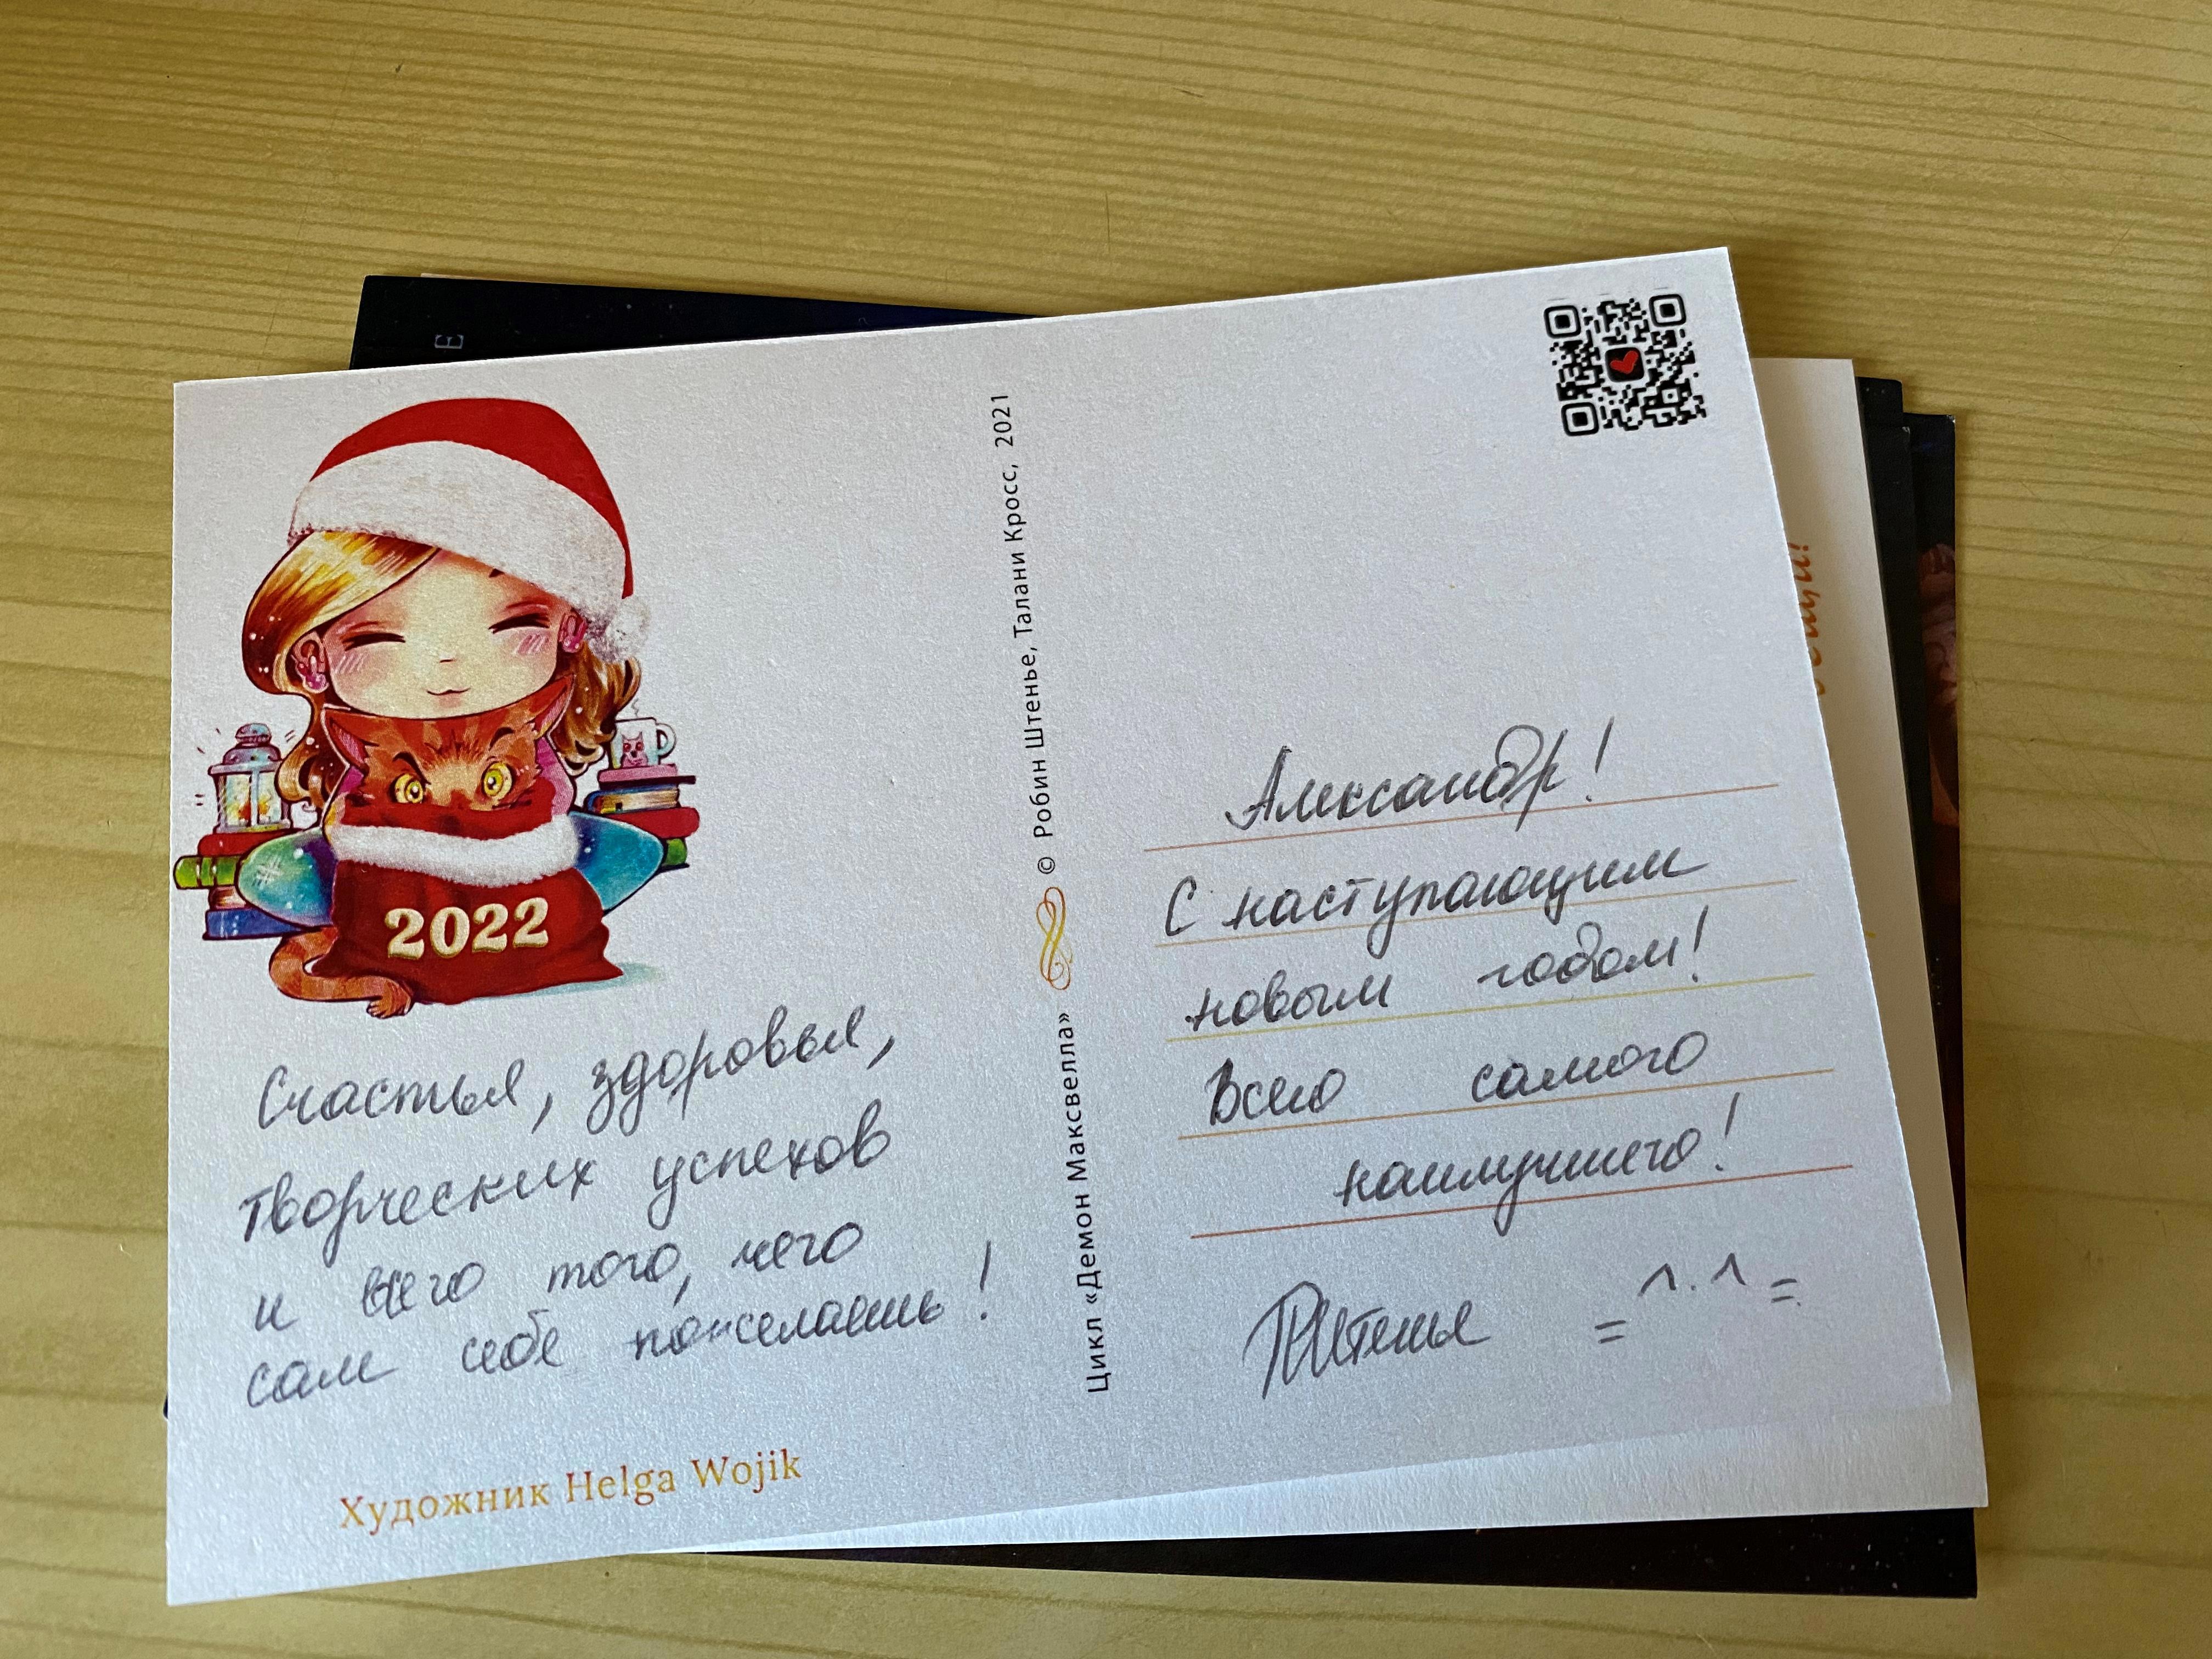 E
2022
Счастья, здоровья,
творческих успехов
и всего того, чего
сам себе пожелаешь!
Художник Helga Wojik
Цикл «Демон Максвелла» © Робин Штенье, Талани Кросс, 2021
Александр!
С наступающим
новым годом!
Всего самого
наилучшего!
РШтенье =^.^=